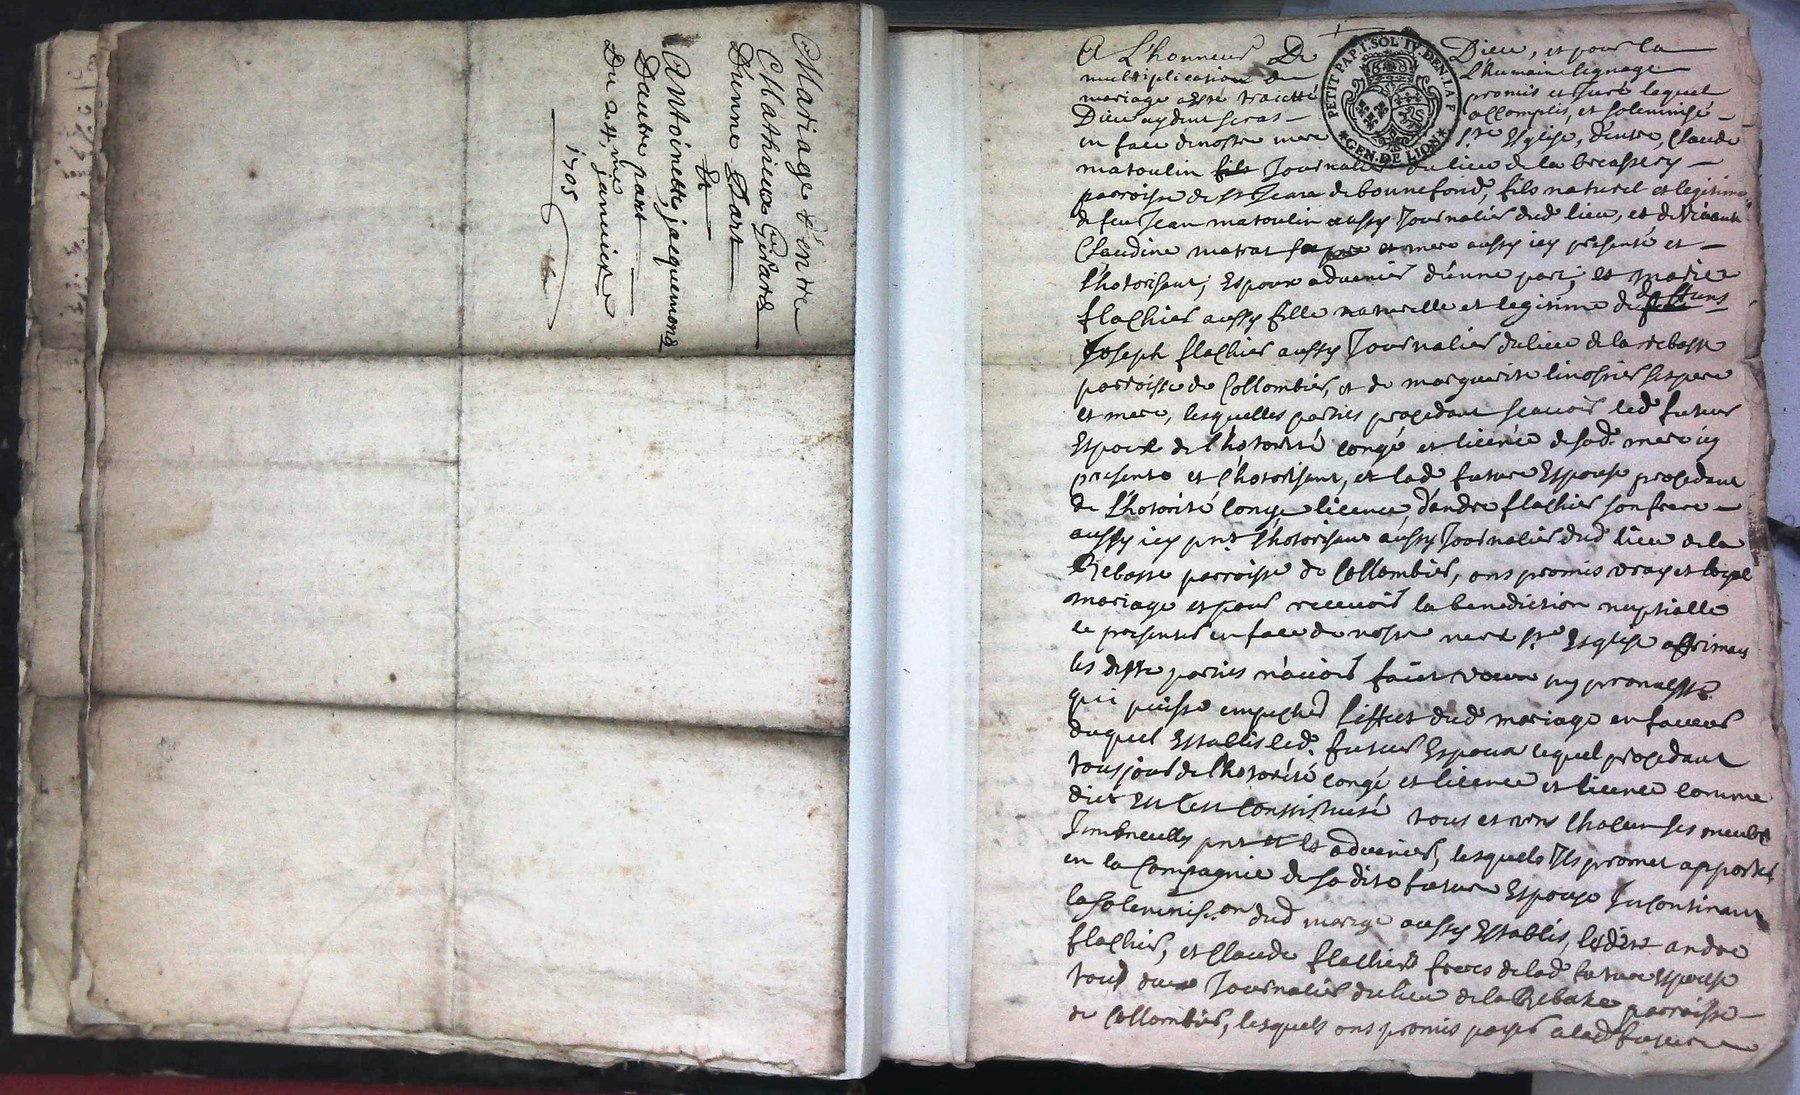 Mariage d'entre
Mathieu Girard
D'unne Part
Et
Antoinette jacquemond
Dautre part
Du 24me janvier
1705
PETIT PAP. 1. SOL IV. DEN. LA F
GEN. DE LION
A L'honneur De Dieu, et pour la
multiplication de L'humain lignage
mariage a esté traicté promis et juré lequel
Dieu aydant seras accomplis, et solemnisé
en face de nostre mere Ste Esglise, d'entre, Claude
matoulin fils Journalier du lieu de la breassery
parroisse de St Jean de bonnefond, fils naturel et legitime
de feu Jean matoulin aussy Journalier dud lieu, et de vivante
Claudine matrat sa mere aussy icy presente et
l'hotorisant, Espoux advenir d'unne part; et marie
flachier aussy fille naturelle et legitime de deffuns
Joseph flachier aussy Journalier du lieu de la rebasse
parroisse de Collombier, et de marguerite linossier ses pere
et mere, lesquelles parties procedant scavoir led futeur
Espoux de l'hotorité congé et licence de sad. mere icy
presente et l'hotorisant, et lad future Espouse procedant
de l'hotorité conge licence, d'andre flachier son frere
aussy icy pnt l'hotorisant aussy Journalier dud lieu de la
Rebasse parroisse de Collombier, ont promis vray et loyal
mariage et pour recevoir la benediction nuptialle
se presenter en face de nostre mere Ste Esglise affirmans
les ditte parties n'avoir faict vœux ny promesse
qui puisse empecher l'effect dud mariage en faveur
duquel Establis led. futeur Espoux lequel procedant
tousjour de l'hotorité congé et licence et licence comme
dict Est c'est constitué tous et uns chacun ses meuble
Jmmeubles pnt et advenir, lesquels Jls promet apporter
en la Compagnie de sa dite future Espouse Jncontinant
la solemnison dud mariage aussy Establis, lesdits andre
flachier, et Claude flachier freres de lad future Espouse
tous deux Journalier du lieu de la Rebasse parroisse
de Collombier, lesquels ont promis payer a lad future